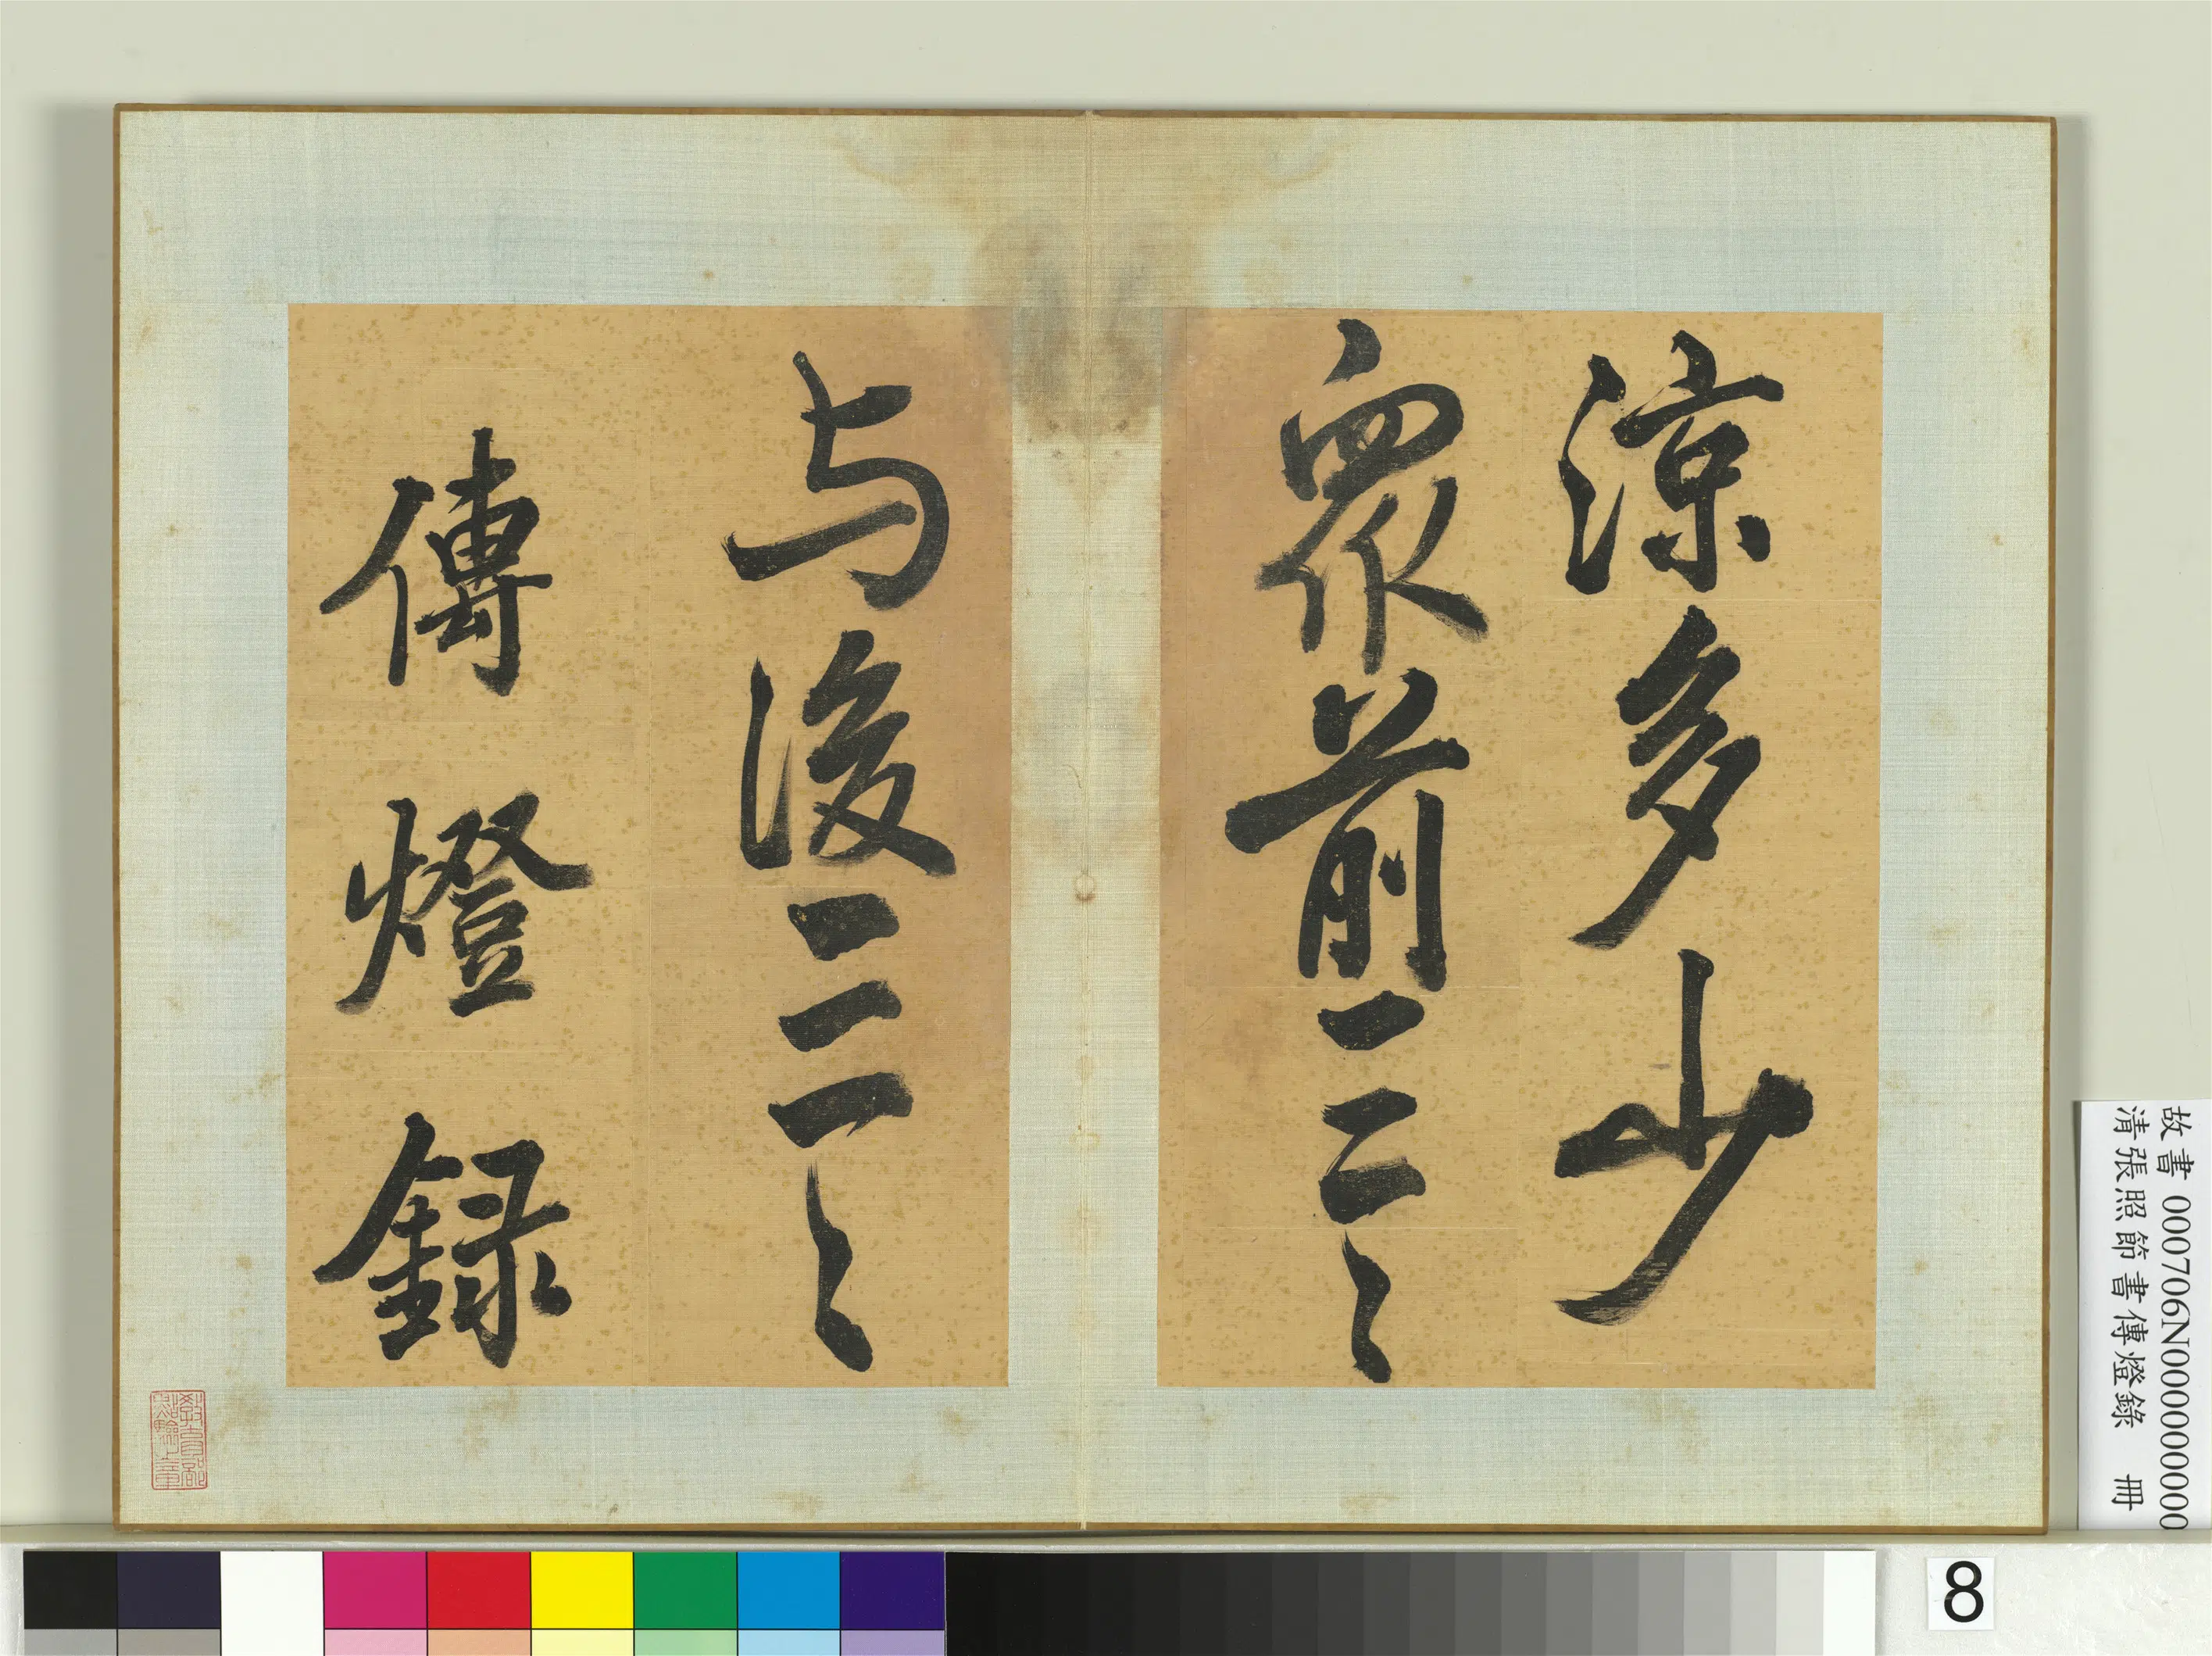 涼多少
眾前三三
与後三三
傳燈錄
教育部點驗之章
故書 000706N000000000
清張照節書傳燈錄 冊
8